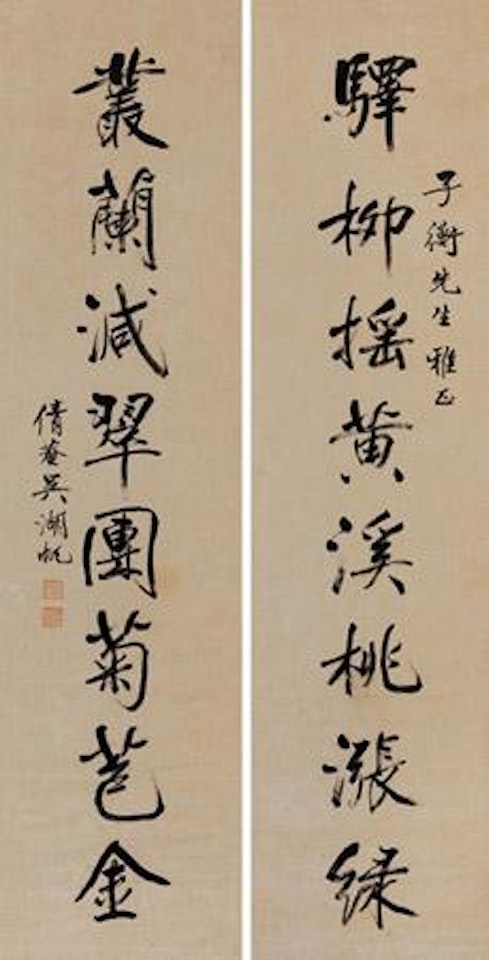 子衡先生雅正
驛柳摇黄溪桃漲綠
叢蘭減翠團菊苞金
倩菴吳湖帆